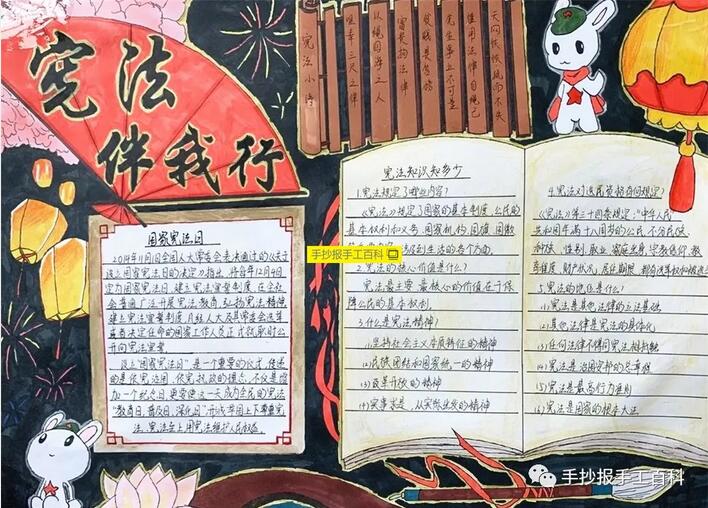 宪法
伴我行
宪法小诗
三尺之律
以绳四海之人
富贵拘法律
贫贱
先生事业不可量
惟用法律自绳己
天网恢恢疏而不失
国家宪法日
2014年11月1日全国人大常委会表决通过的《关于
设立国家宪法日的决定》指出，将每年12月4日
定为国家宪法日，建立宪法宣誓制度，在全社
会普遍广泛开展宪法教育，弘扬宪法精神
建立宪法宣誓制度，凡经人大及其常委会选举
或者决定任命的国家工作人员正式就职时公
开向宪法宣誓。
设立“国家宪法日”是一个重要的仪式，传递
的是依宪治国、依宪执政的理念，不仅是增
加一个纪念日，更要使这一天成为全民的宪法
“教育日、普及日、深化日”，形成举国上下尊重宪
法、宪法至上用宪法维护人民权益。
宪法知识知多少
1.宪法规定了哪些内容？
《宪法》规定了国家的基本制度，公民的
基本权利和义务，国家机构，国旗，国徽
到生活的各个方面。
2.宪法的核心价值是什么？
宪法最主要最核心的价值在于保
障公民的基本权利。
3.什么是宪法精神？
(1)坚持社会主义本质特征的精神
(2)民族团结和国家统一的精神
(3)改革开放的精神
(4)实事求是，从实际出发的精神
4.宪法对选民资格有何规定？
《宪法》第三十四条规定：“中华人民
共和国年满十八周岁的公民，不分民族
种族，性别，职业，家庭出身，宗教信仰，教
育程度，财产状况，居住期限，都有选举权和被选
5.宪法的地位是什么？
(1)宪法是其他法律的立法基础
(2)其他法律是宪法的具体化
(3)任何法律不得同宪法相抵触
(4)宪法是治国安邦的总章程
(5)宪法是最高行为准则
(6)宪法是国家的根本大法
手抄报手工百科
手抄报手工百科